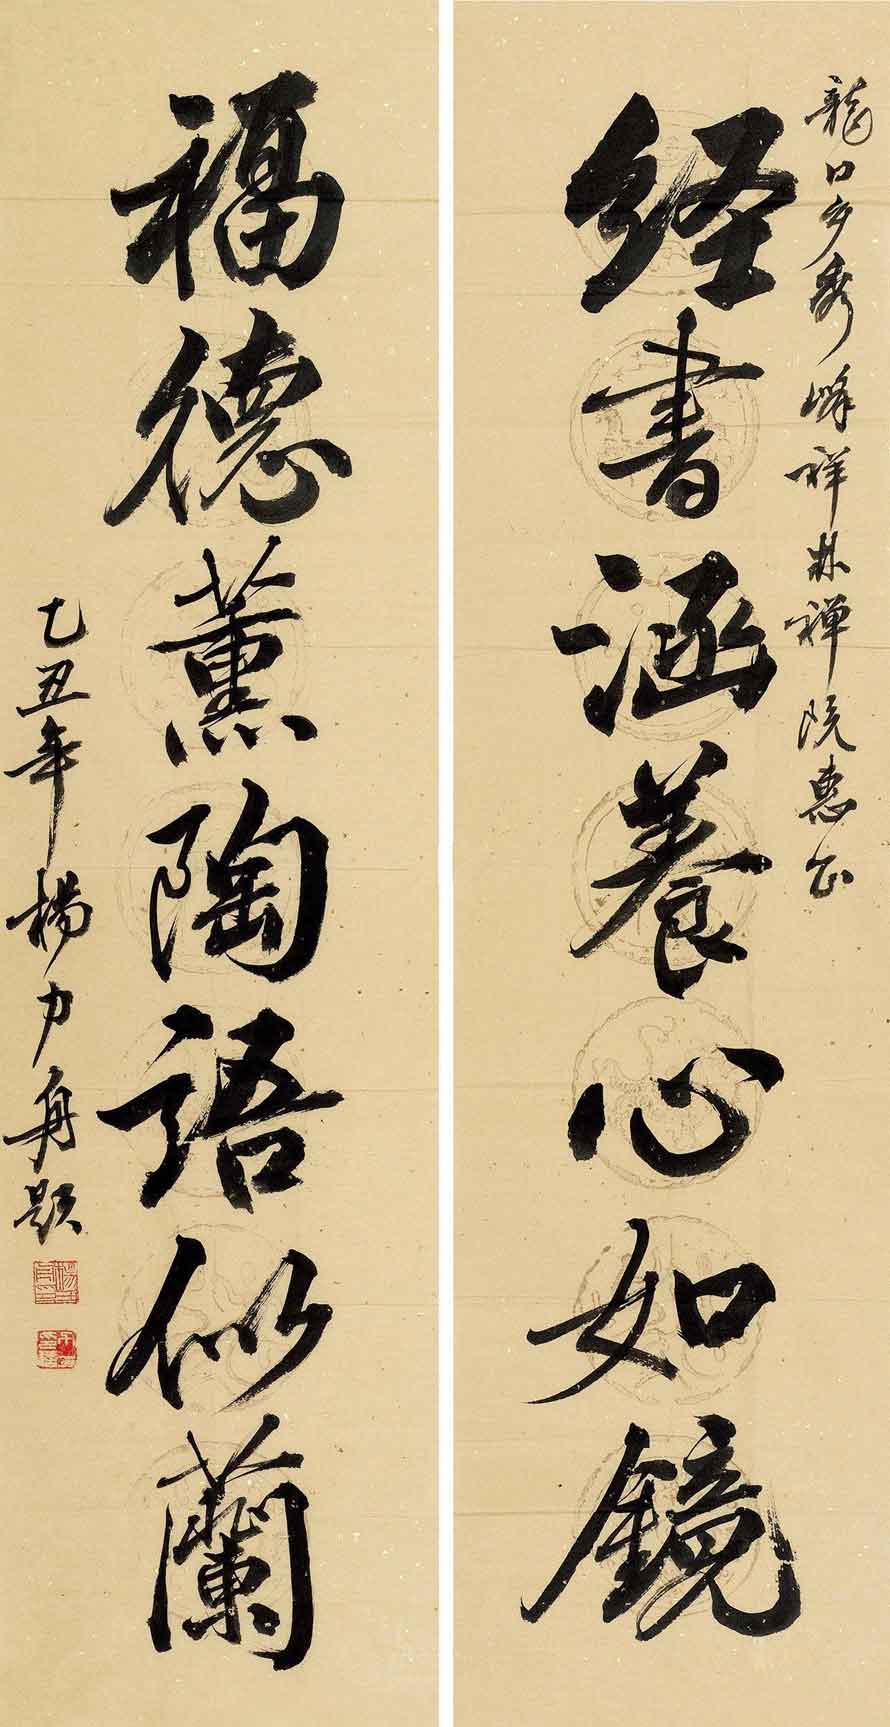 龍口乡秀峰祥林禅院惠正
经書涵養心如鏡
福德薰陶語似蘭
乙丑年楊力舟題